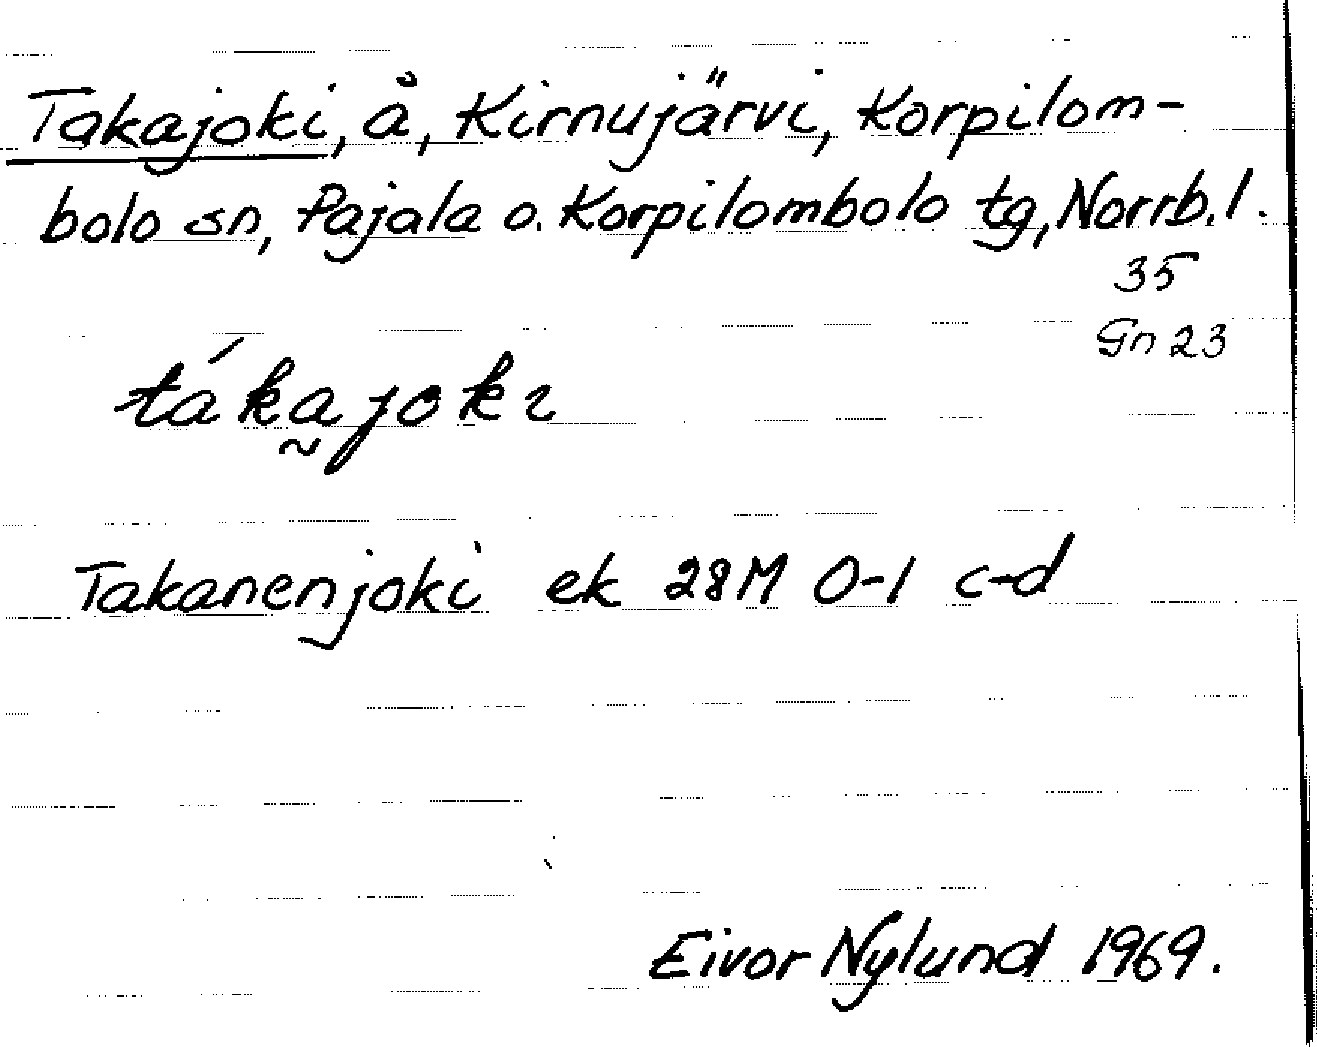 Takajoki, å, Kirnujärvi, Korpilom-
bolo sn, Pajala o. Korpilombolo tg, Norrb. l.
35
Gn 23
táka̰jokɩ
Takanenjoki ek 28M 0-1 c-d
Eivor Nylund 1969.